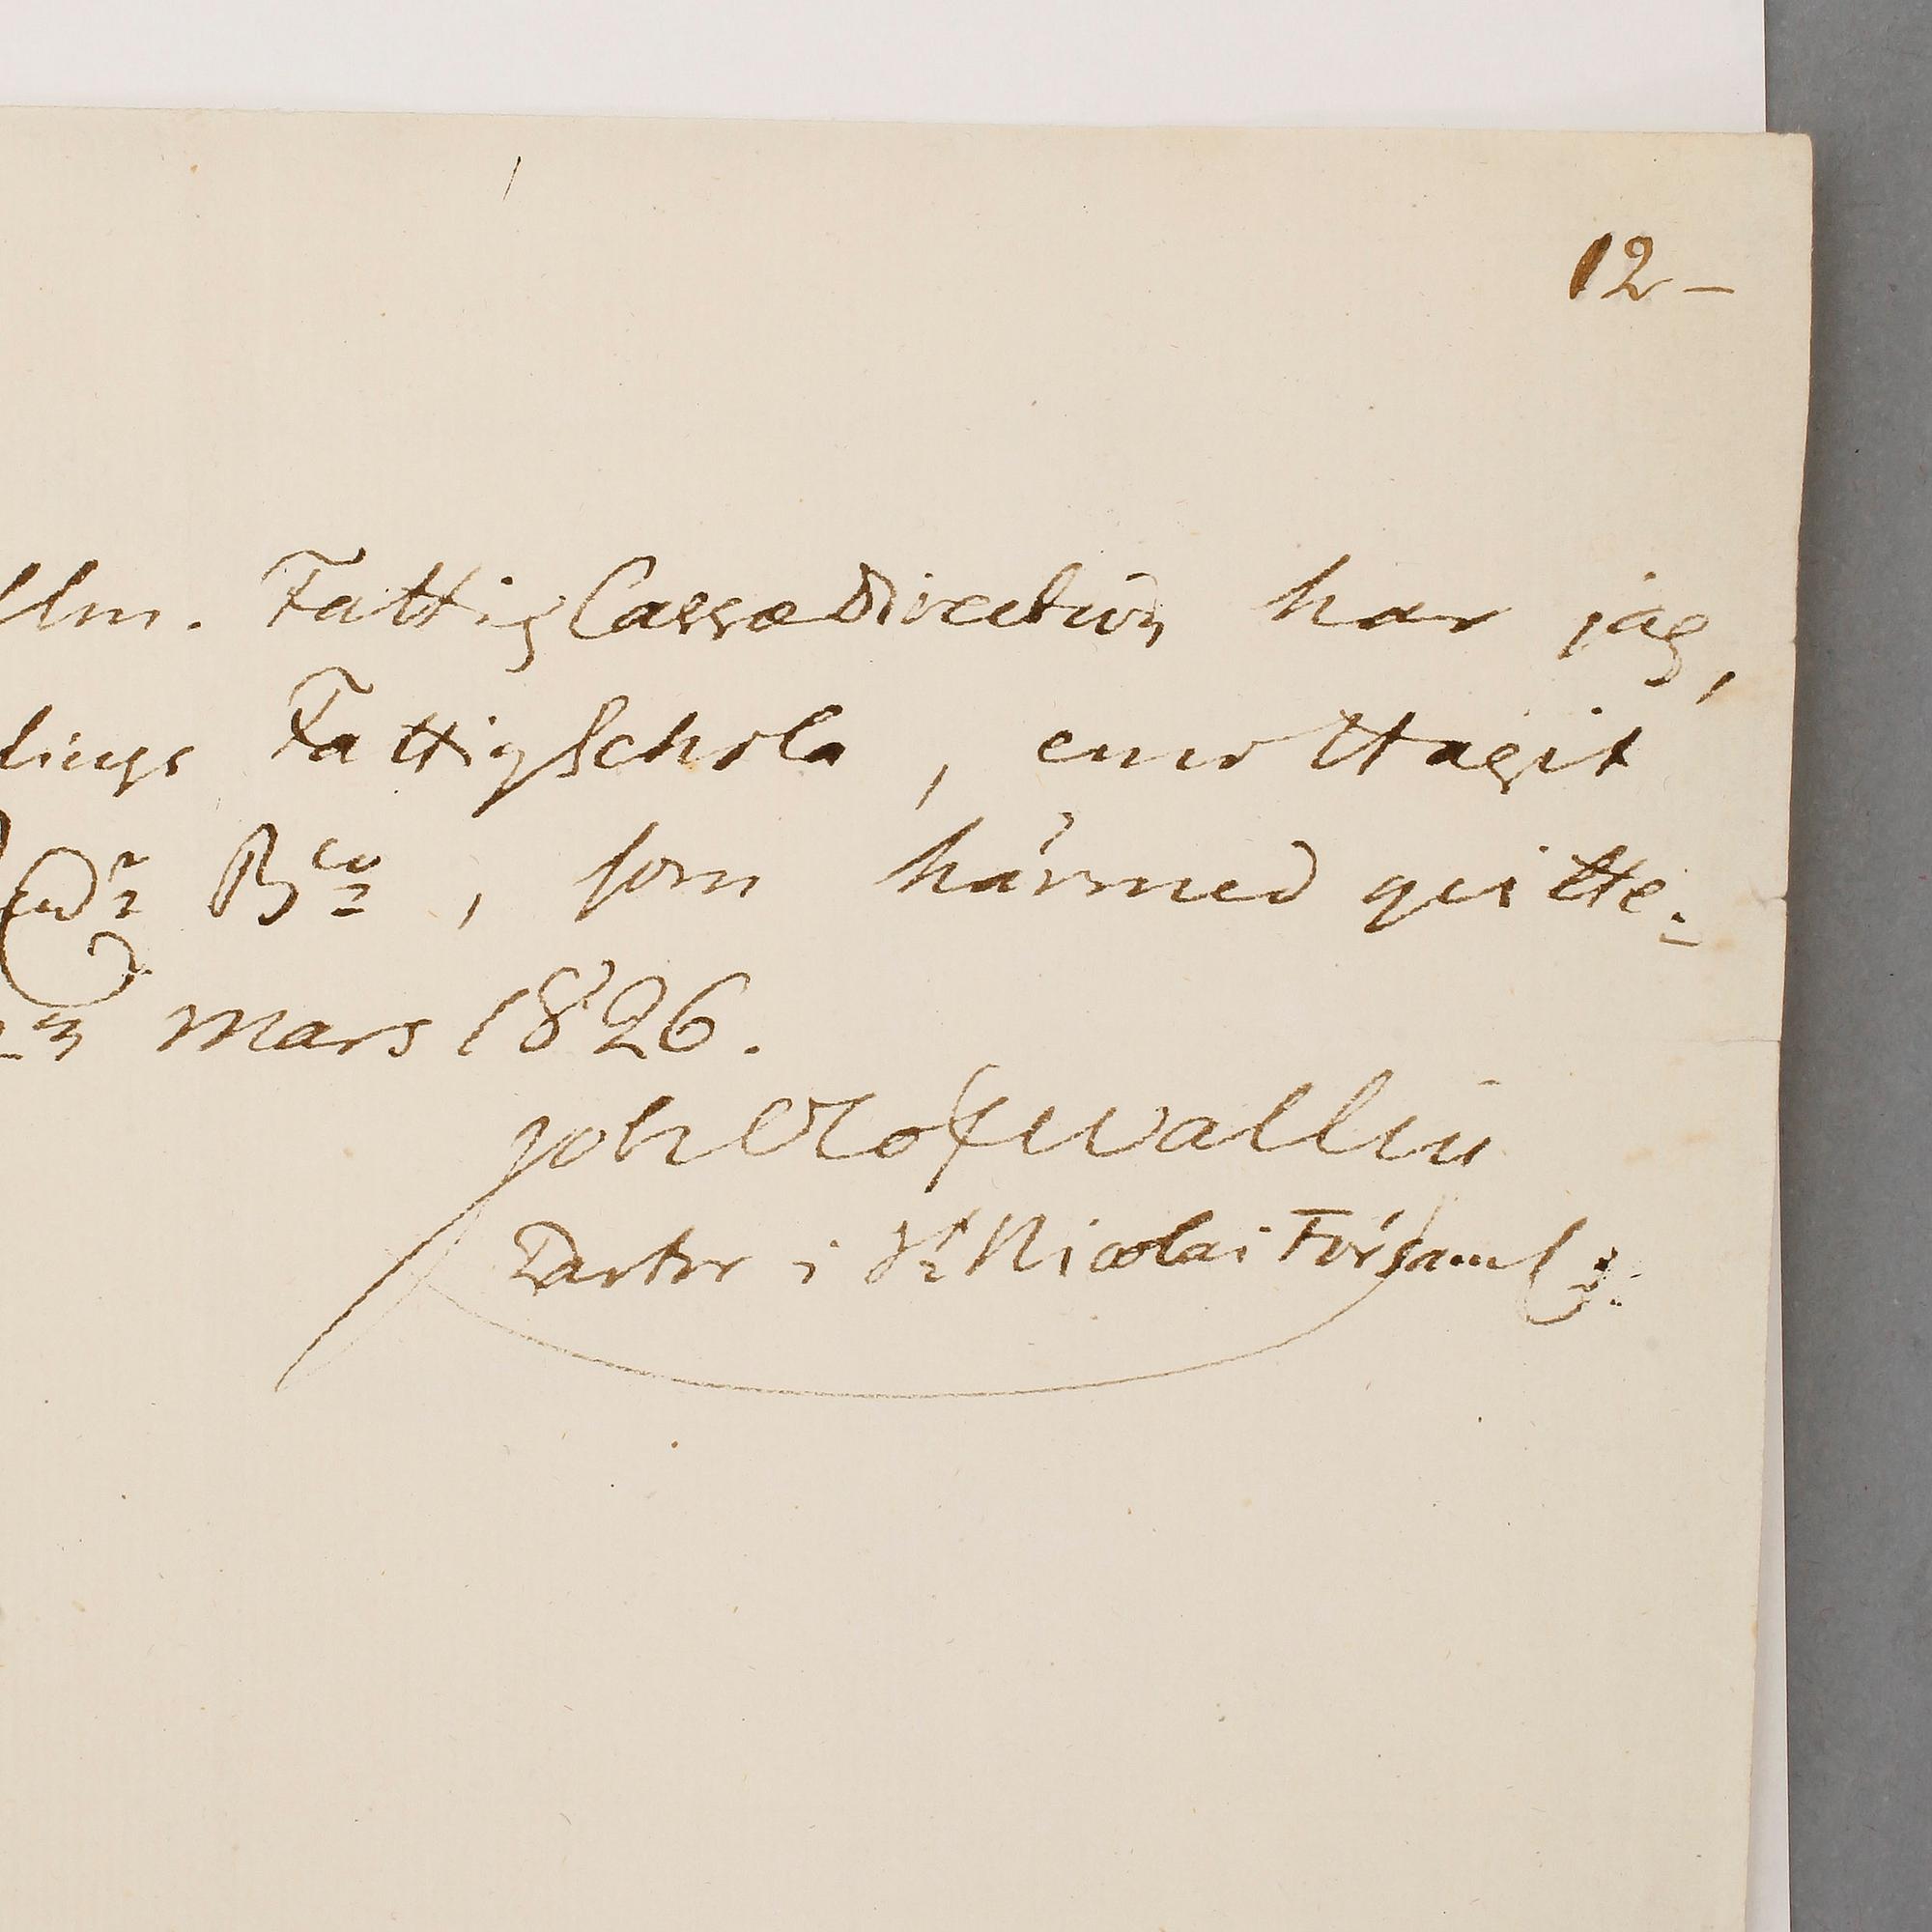 12-
llm. FattigCasseDirection har jag,
lings Fattigschola, emottagit
Bco, som härmed quitte-
Mars 1826.
Joh Olof Wallin
Pastor i St Nicolai Församl: